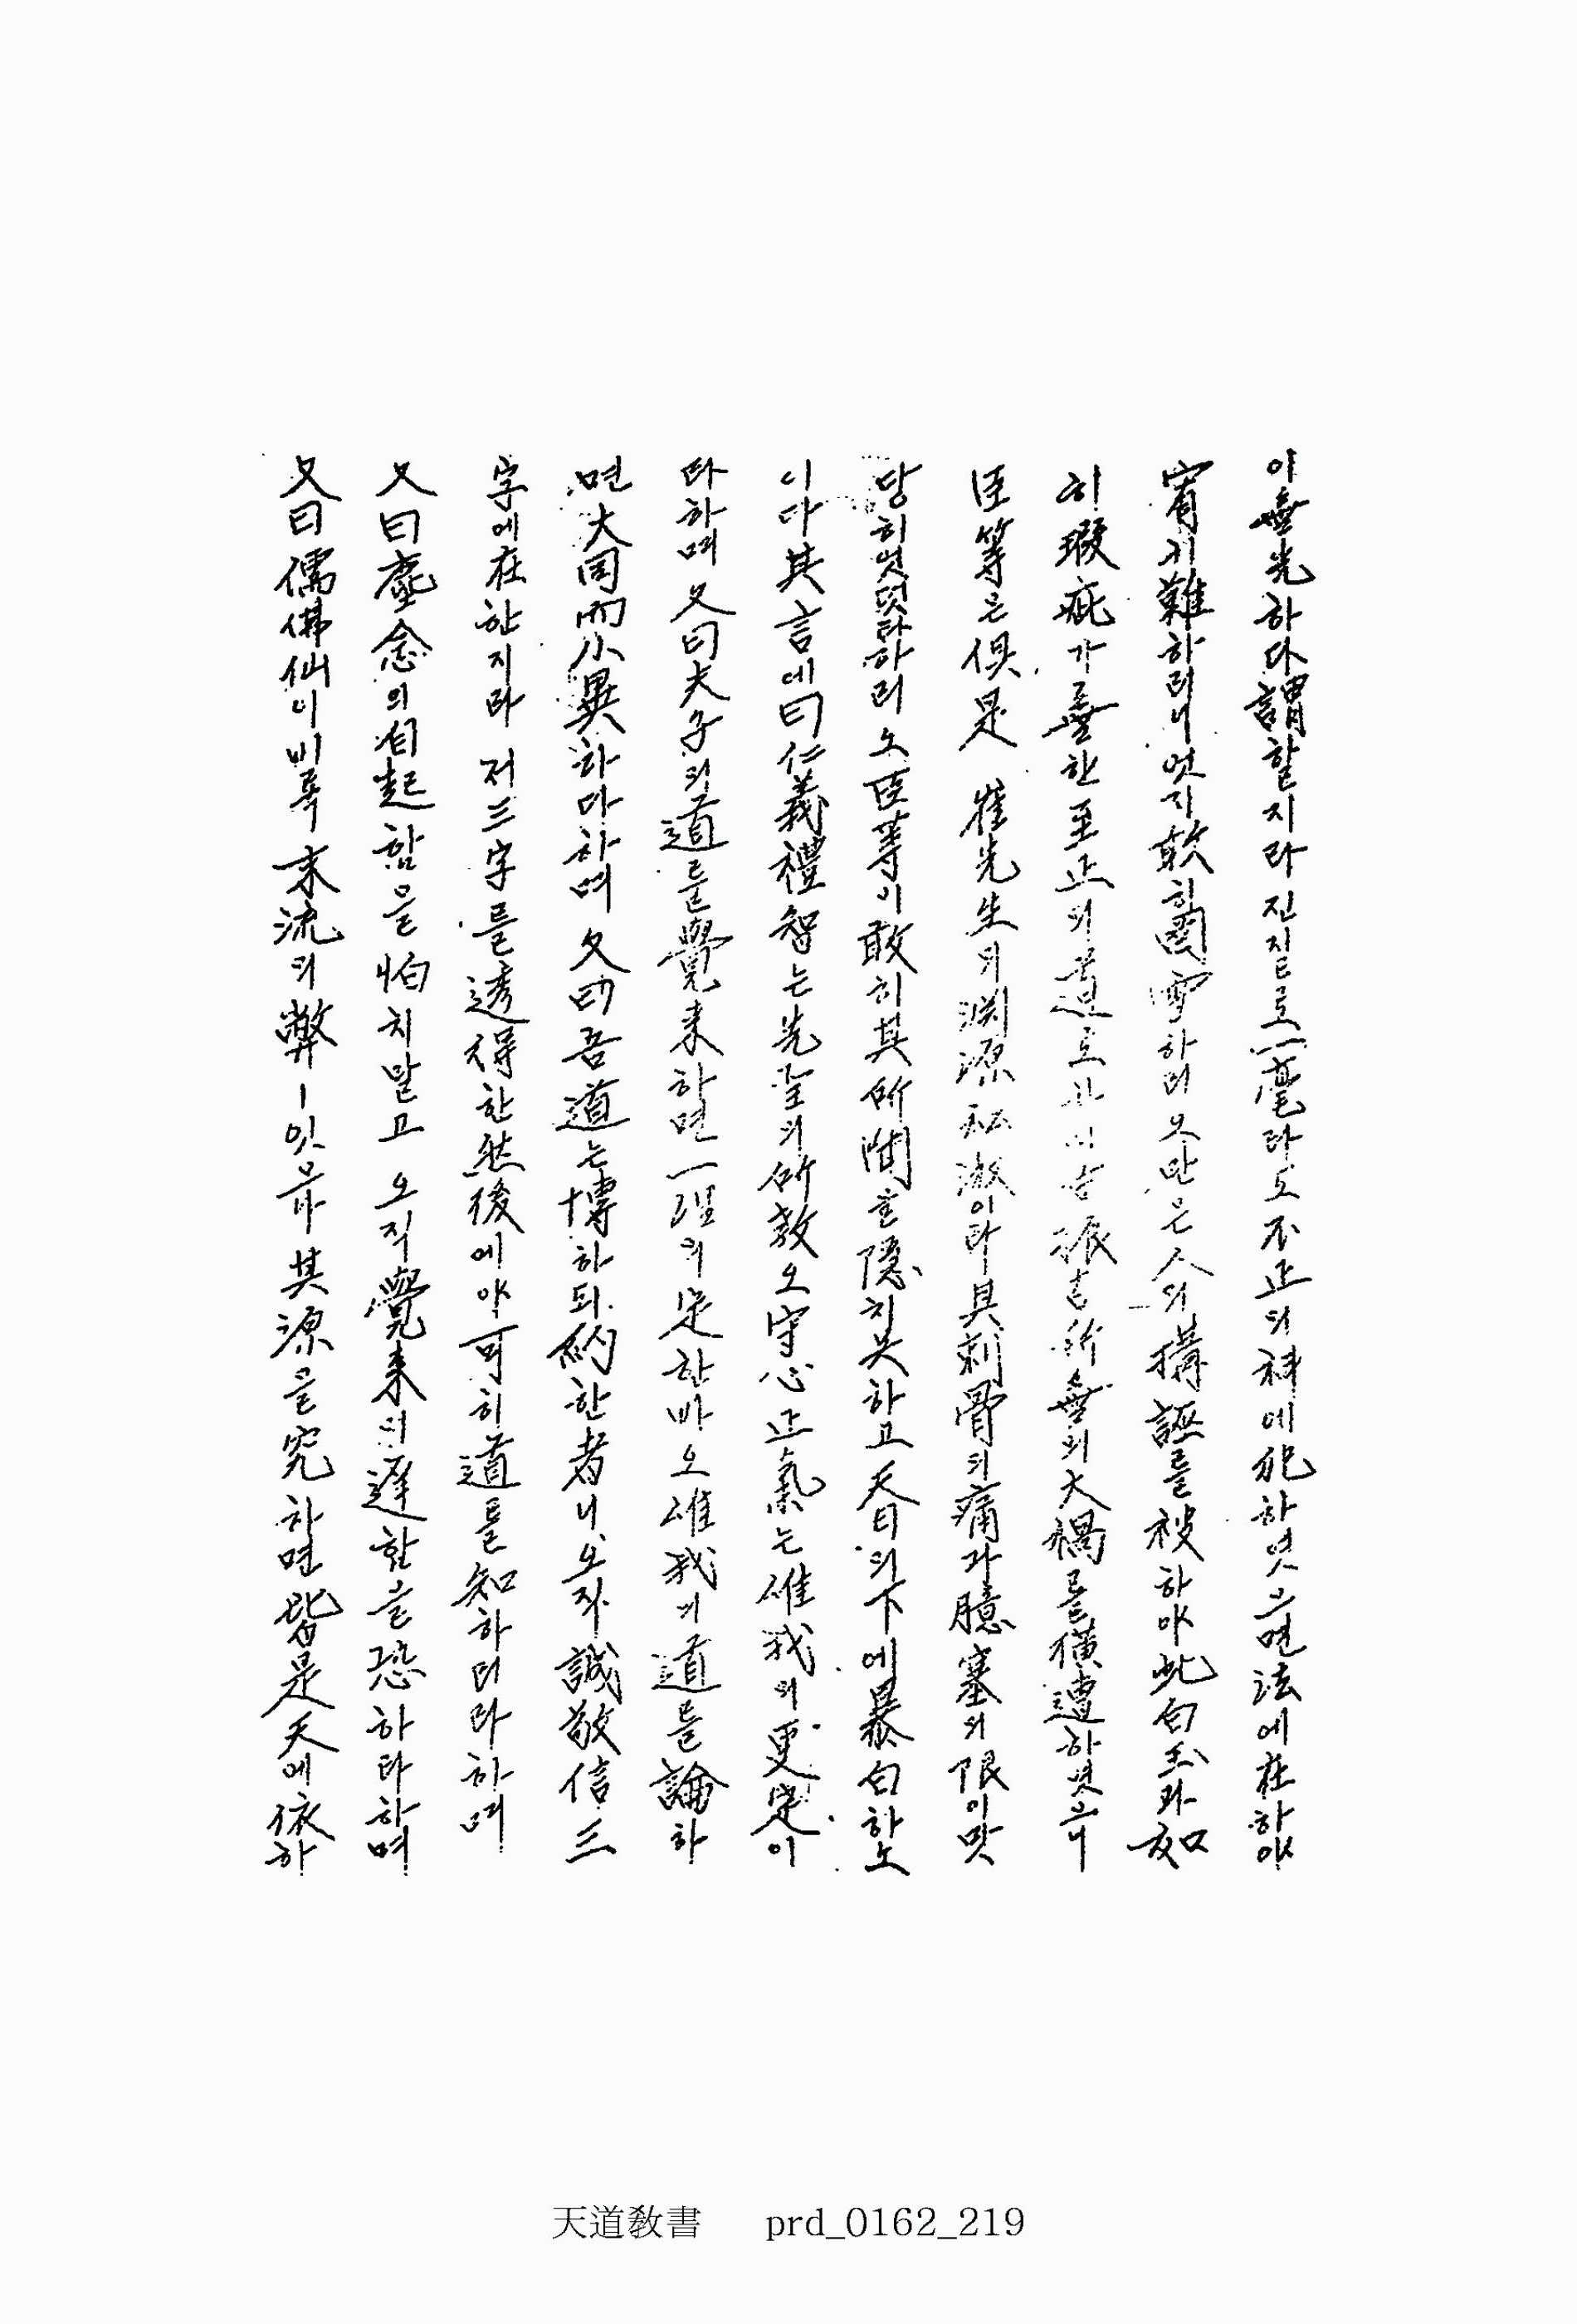 이無光하다謂할지라진질로一毫라도不正의科에犯하엿으면法에在하야
宥키難하려니엇지敢히圖雪하리오만은人의搆誣를被하야此白玉과如
히瑕疵가無한至正의道로 振古所無의大禍를橫遭하엿으니
臣等은俱是 崔先生의淵源私淑이라其刺骨의痛과臆塞의恨이맛
당히엇덧타하리오臣等이敢히其所聞을隱치못하고天日의下에暴白하노
이다其言에曰仁義禮智는先聖의所敎오守心正氣는唯我의更定이
라하며又曰夫子의道를覺來하면一理의定한바오唯我의道를論하
면大同而小異하다하며又曰吾道는博하되約한者니오직誠敬信三
字에在한지라저三字를透得한然後에야可히道를知하리라하며
又曰塵念의自起함을怕치말고오직覺來의遲함을恐하라하며
又曰儒佛仙이비록末流의弊ㅣ잇으나其源을究하면皆是天에依하
天道敎書 prd_0162_219